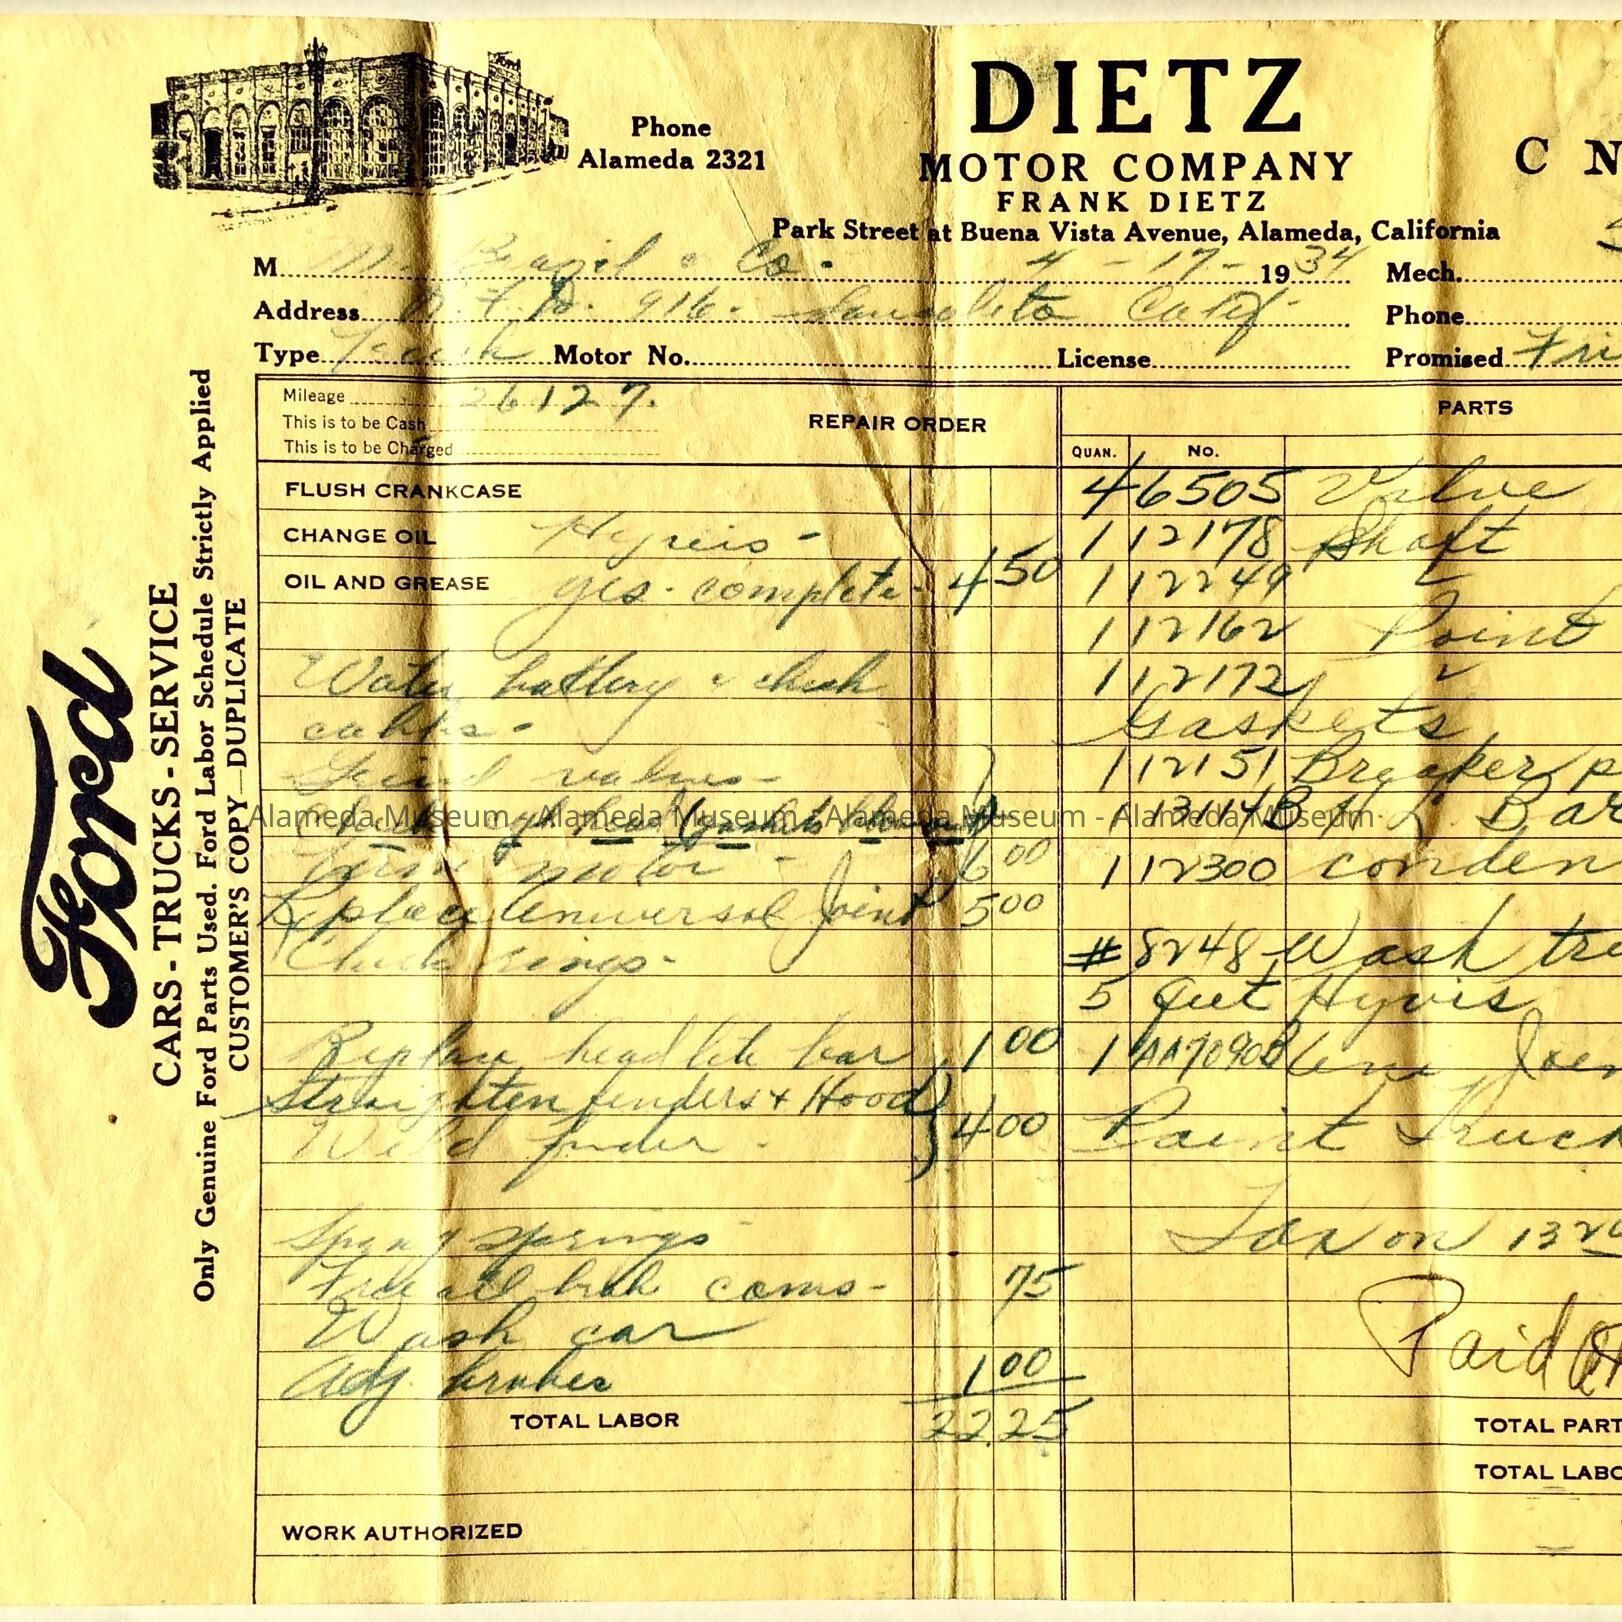 Ford
Phone
Alameda 2321
DIETZ
MOTOR COMPANY
FRANK DIETZ
Park Street at Buena Vista Avenue, Alameda, California
C N
M Brazil & Co. 4-17-1934 Mech.
Address R.F.D. 916. Sausalito Calif. Phone
Type Motor No. License Promised Fri
Ford
CARS - TRUCKS - SERVICE
Only Genuine Ford Parts Used. Ford Labor Schedule Strictly Applied
CUSTOMER'S COPY—DUPLICATE
Mileage 26127.
This is to be Cash
This is to be Charged
REPAIR ORDER
FLUSH CRANKCASE
CHANGE OIL
OIL AND GREASE yes. complete- 4 50
Water battery & check
cables.
Grind valves-
Check Gaskets
motor - 6 00
Replace Universal Joint 5 00
Check rings-
Replace head lite bar 1 00
Straighten fenders & Hood
Weld fender. 4 00
Spray springs
Free all brake cams- 75
Wash car
Adj. brakes 1 00
TOTAL LABOR 22.25
WORK AUTHORIZED
PARTS
QUAN. No.
4 6505 Valve
1 12178 Shaft
1 12249 "
1 12162 Point
1 12172 "
Gaskets
1 12151 Breaker p
1 13114B H L Bar
1 12300 conden
#8248 Wash tre
5 Qut Hyvis
1 AA7090B Uni Join
Paint Truck
Tax on 13
Paid
TOTAL PART
TOTAL LABO
Alameda Museum - Alameda Museum - Alameda Museum - Alameda Museum